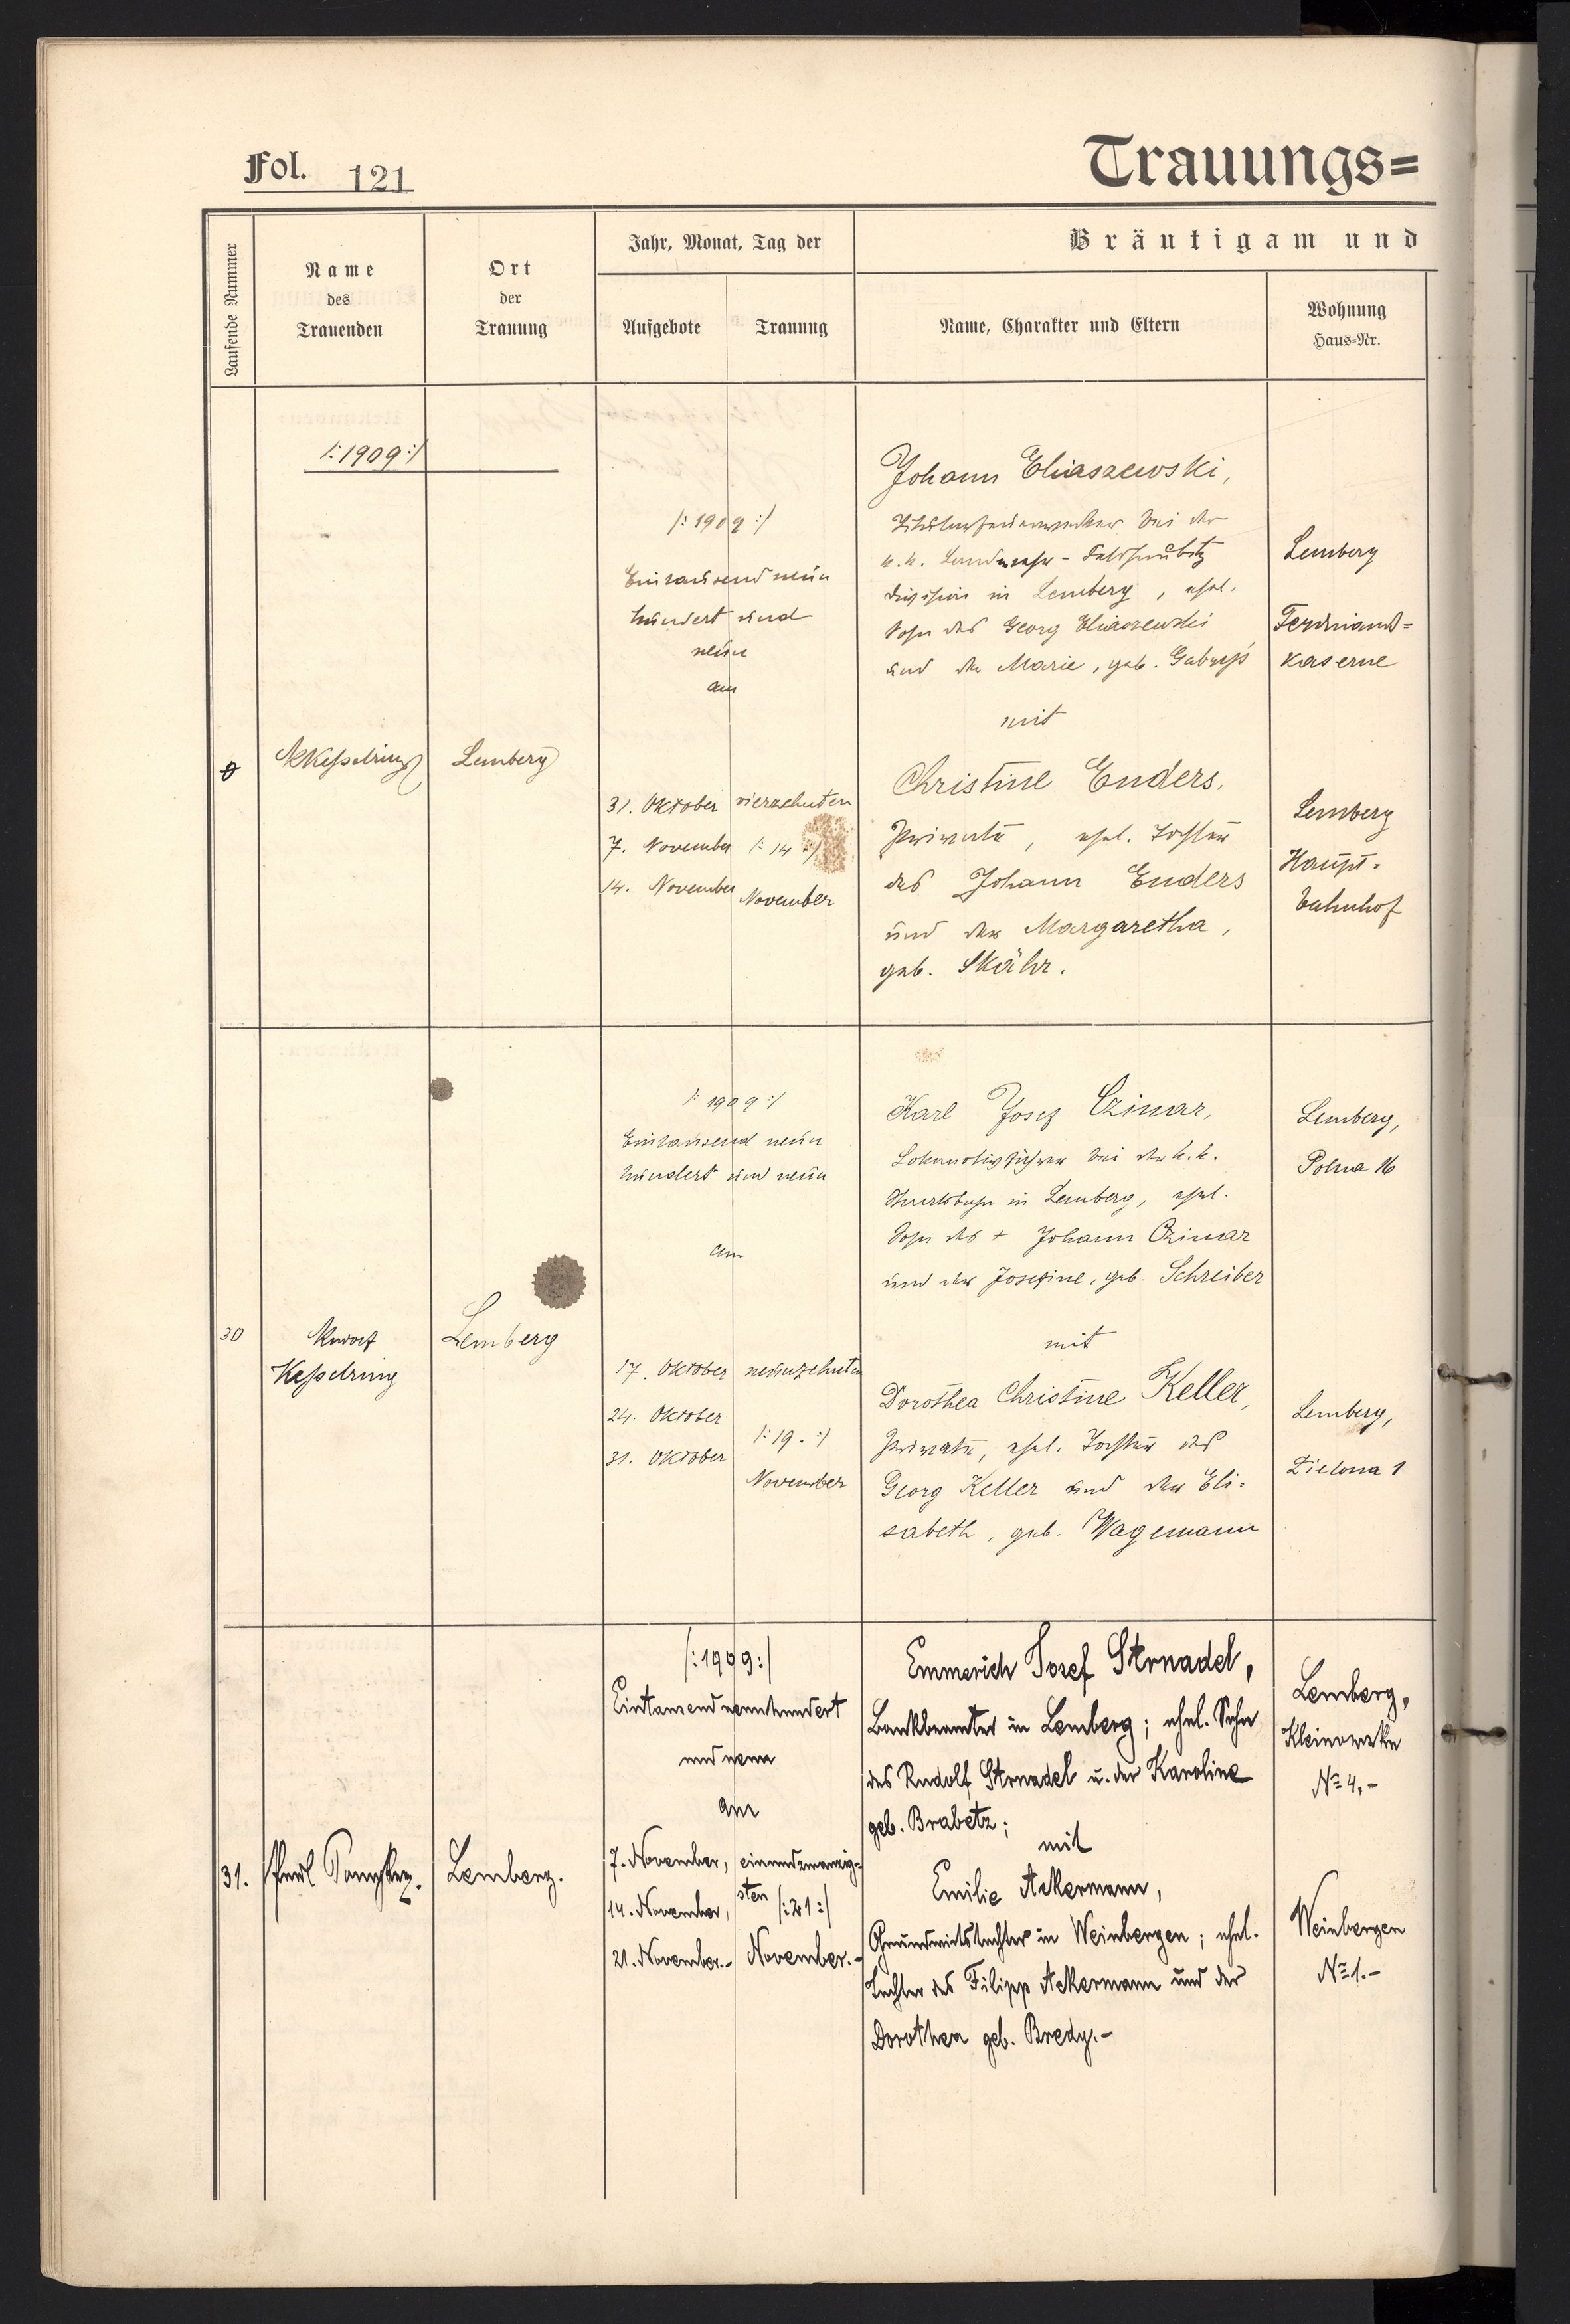 Fol. 121
Trauungs=
Laufende Nummer
Name
des
Trauenden
Ort
der
Trauung
Jahr, Monat, Tag der
Aufgebote
Trauung
Bräutigam und
Name, Charakter und Eltern
Wohnung
Haus-Nr.
/: 1909 :/
/: 1909 :/
Eintausend neun
hundert und
neun
am
Kesselring
Lemberg
31. Oktober
7. November
14. November
vierzehnten
/: 14 :/
November
Johann Eliaszewski,
bei der
k.k. Landwehr-Feldhaubitz
division in Lemberg, ehel.
Sohn des Georg Eliaszewski
und der Marie, geb. Gabryś
mit
Christine Enders,
Private, ehel. Tochter
des Johann Enders
und der Margaretha,
geb. Skähr.
Lemberg
Ferdinands=
kaserne
Lemberg
Haupt=
bahnhof
30
Rudolf
Kesselring
Lemberg
/: 1909 :/
Eintausend neun
hundert und neun
am
17. Oktober
24. Oktober
31. Oktober
neunzehnten
/: 19. :/
November
Karl Josef Czimar,
Lokomotivführer bei der k.k.
Staatsbahn in Lemberg, ehel.
Sohn des + Johann Czimar
und der Josefine, geb. Schreiber
mit
Dorothea Christine Keller,
Private, ehel. Tochter des
Georg Keller und der Eli=
sabeth, geb. Wagemann
Lemberg,
Polna 16
Lemberg,
Zielona 1
31.
Lemberg.
/: 1909 :/
Eintausendneunhundert
und neun
am
7. November,
14. November,
21. November.-
einundzwanzig=
sten /: 21 :/
November.-
Emmerich Josef Strnadel,
Bankbeamter in Lemberg; ehel. Sohn
des Rudolf Strnadel u. der Karoline
geb. Brabetz;
mit
Emilie Ackermann,
Grundwirtstochter in Weinbergen; ehel.
Tochter des Filipp Ackermann und der
Dorothea geb. Bredy.-
Lemberg,
No 4.-
Weinbergen
No 1.-